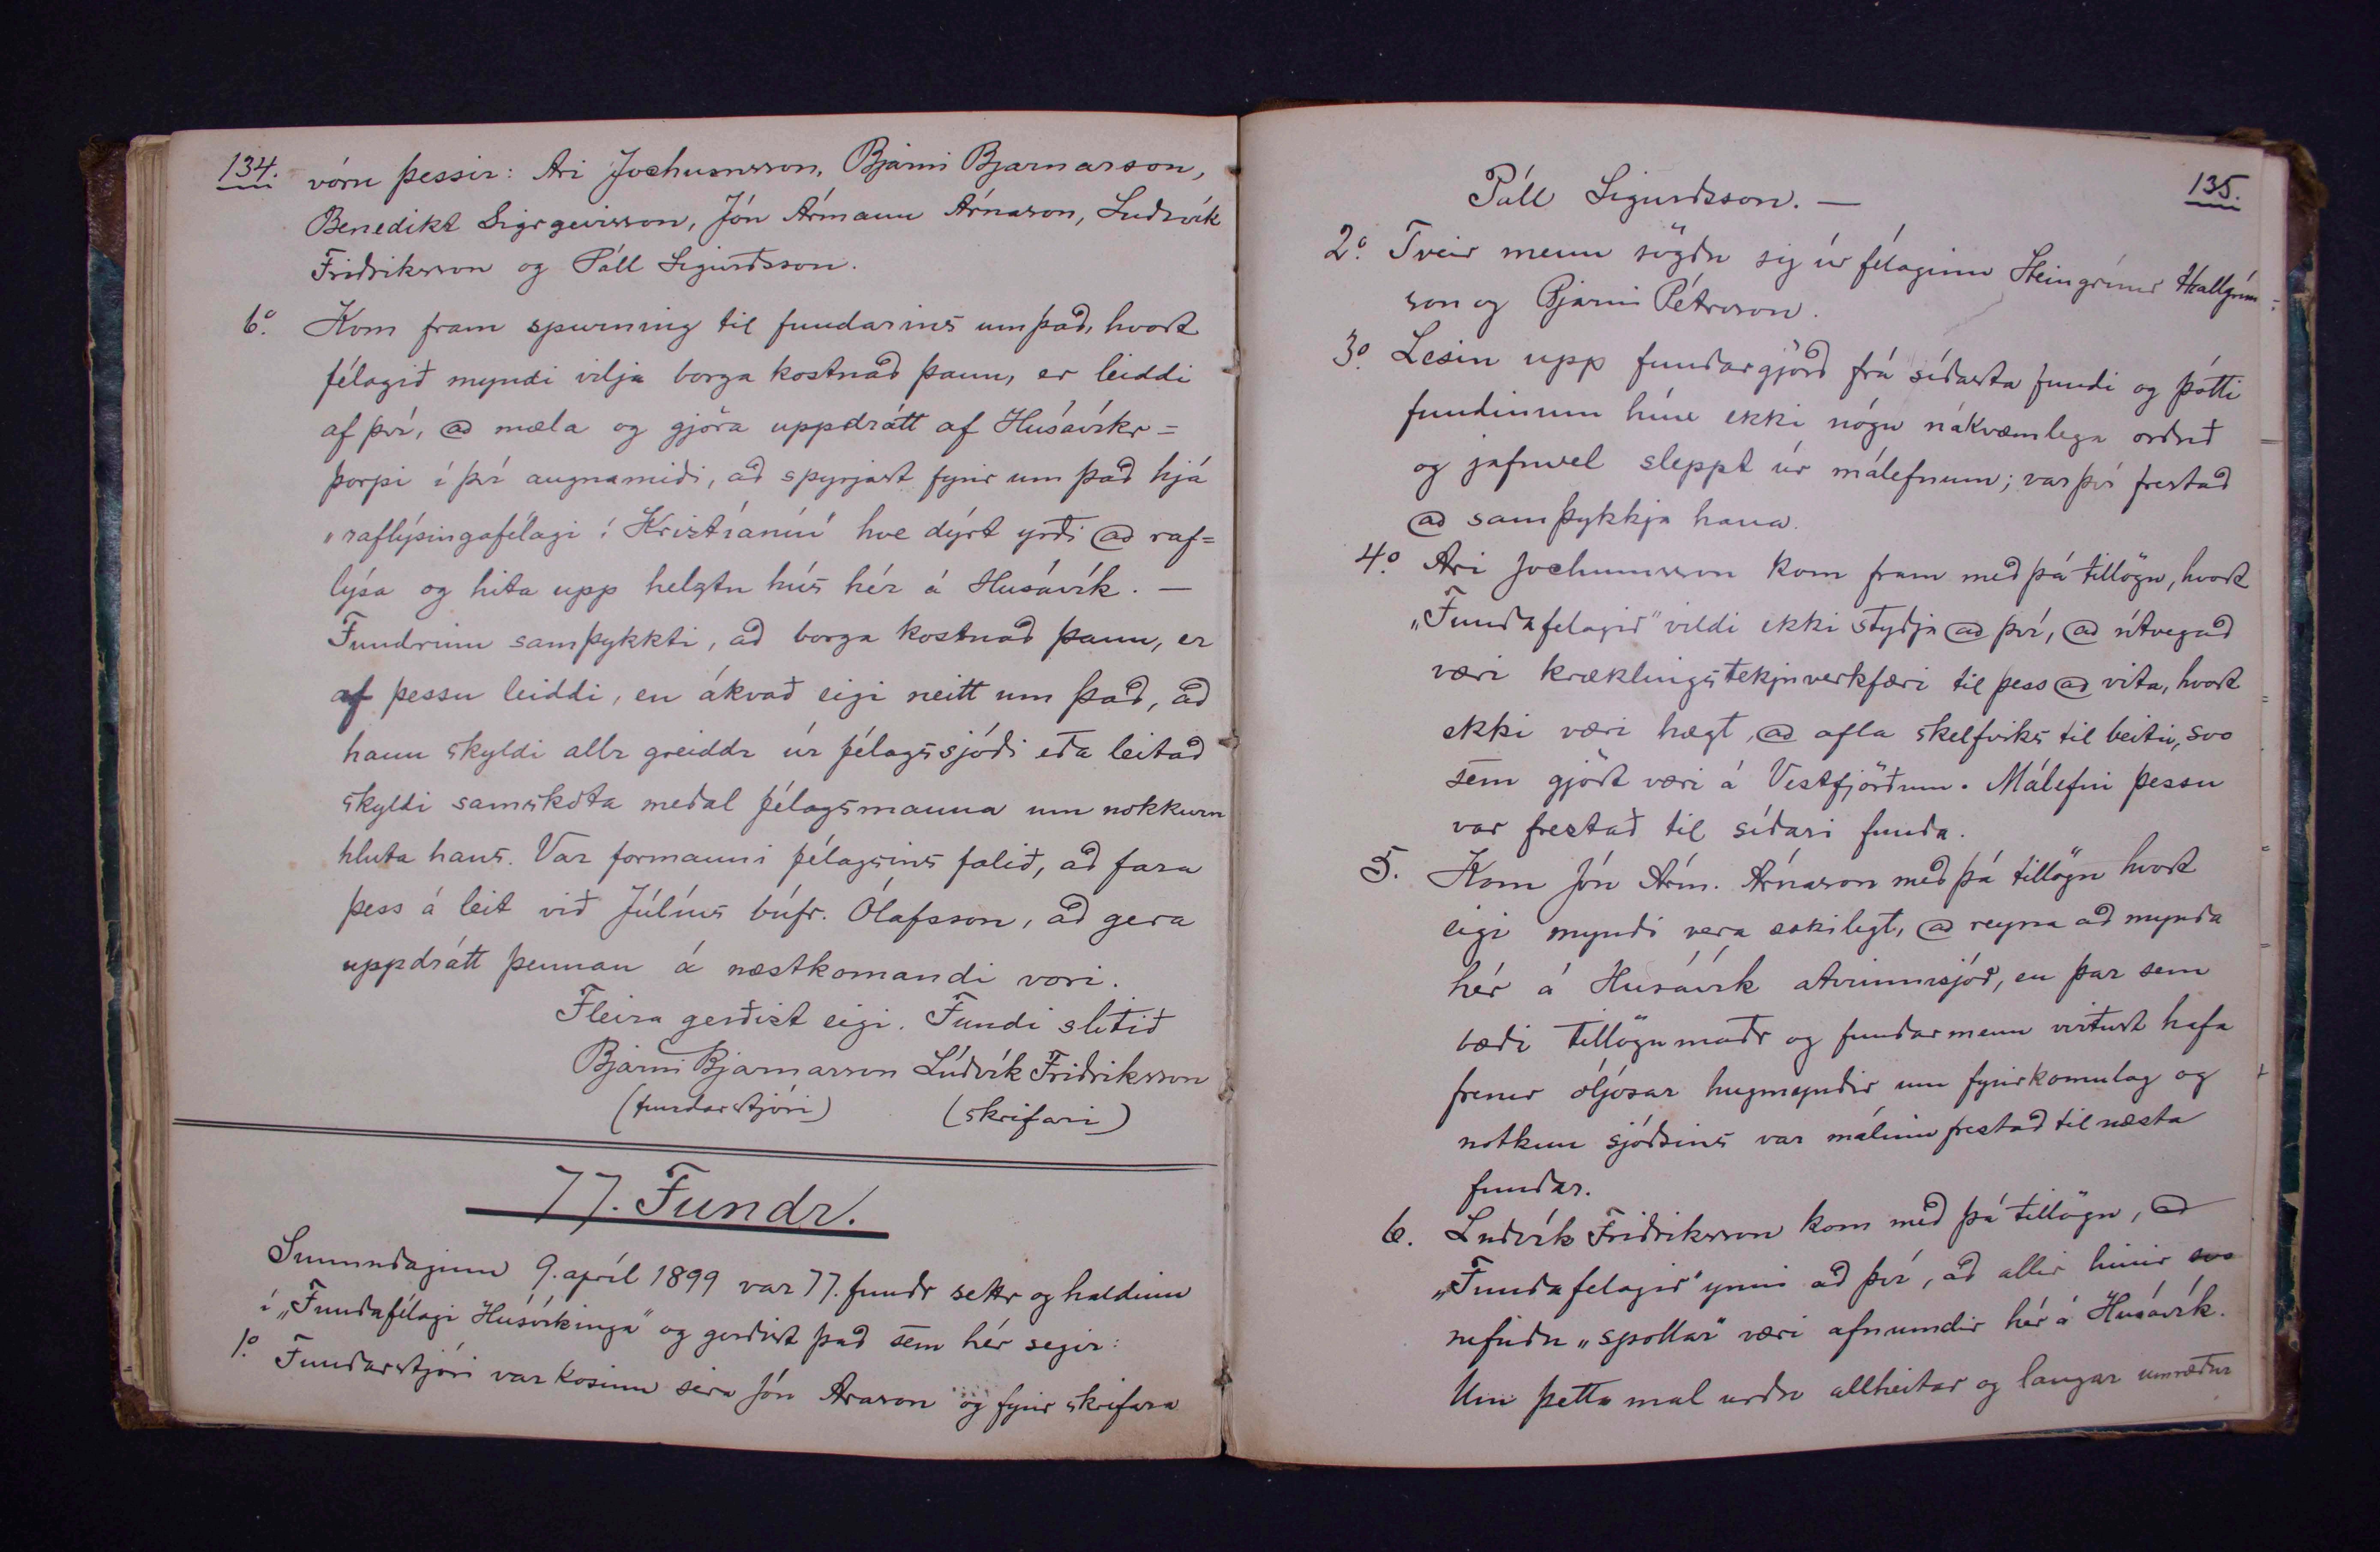 134.
vóru þessir: Ari Jochumsson, Bjarni Bjarnarson,
Benedikt Sigrgeirsson, Jón Ármann Árnason, Ludvík
Fridriksson og Páll Sigurdsson.
6º. Kom fram spurning til fundarins um það, hvort
félagið myndi vilja borga kostnað þann, er leiddi
af því, að mæla og gjöra uppdrátt af Húsavíkr=
þorpi í því augnamiði, að spyrjast fyrir um það hjá
„raflýsingafélagi í Kristíaníu" hve dýrt yrði að raf=
lýsa og hita upp helztu hús hér á Húsavík. —
Fundrinn samþykkti, að borga kostnað þann, er
af þessu leiddi, en ákvað eigi neitt um það, að
hann skyldi allr greiddr úr félagssjóði eða leitað
skyldi samskota meðal félagsmanna um nokkurn
hluta hans. Var formanni félagsins falið, að fara
þess á leit við Júlíus búfr. Ólafsson, að gera
uppdrátt þennan á næstkomandi vori.
Fleira gerðist eigi. Fundi slitið
Bjarni Bjarnarson Lúdvík Fridriksson
(fundarstjóri) (skrifari)
77. Fundr.
Sunnudaginn 9. apríl 1899 var 77. fundr settr og haldinn
í „Fundafélagi Húsvíkinga" og gerðist það sem hér segir:
1º. Fundarstjóri var kosinn séra Jón Arason og fyrir skrifara
135.
Páll Sigurdsson. —
2º. Tveir menn sögðu sig úr félaginu Steingrímur Hallgríms=
son og Bjarni Pétrsson.
3º. Lesin upp fundargjörð frá síðasta fundi og þótti
fundinum hún ekki nógu nákvæmlega orðuð
og jafnvel sleppt úr málefnum; var því frestað
að samþykkja hana.
4º. Ari Jochumsson kom fram með þá tillögu, hvort
„Fundafelagið" vildi ekki styðja að því, að útvegað
væri kræklingstekjuverkfæri til þess að vita, hvort
ekki væri hægt, að afla skelfisks til beitu, svo
sem gjört væri á Vestfjörðum. Málefni þessu
var frestað til síðari funda.
5. Kom Jón Árm. Árnason með þá tillögu hvort
eigi myndi vera æskilegt, að reyna að mynda
hér á Húsávík atvinnusjóð, en þar sem
bæði tillögumaðr og fundarmenn virtust hafa
fremr óljósar hugmyndir um fyrirkomulag og
notkun sjóðsins var málinu frestað til næsta
fundar.
6. Ludvík Fridriksson kom með þá tillögu, að
„Fundafelagið" ynni að því, að allir hinir svo
nefndu „spottar" væri afnumdir hér á Húsávík.
Um þetta mal urðu allheitar og langar umræður